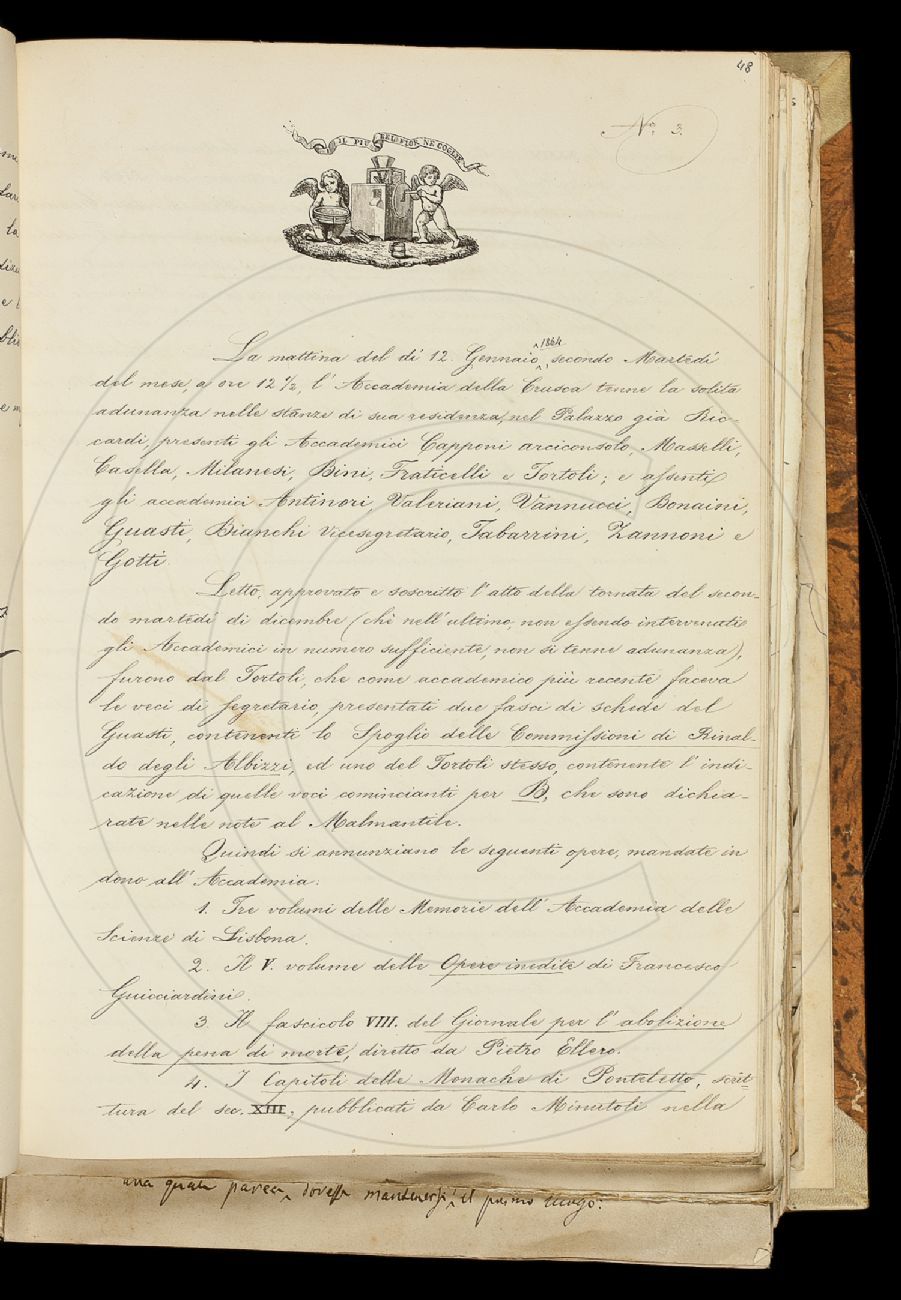 48
N.° 3.
IL PIÙ BEL FIOR NE COGLIE
La mattina del dì 12. Gennaio, 1864 secondo Martedì
del mese, a ore 12 1/2, l' Accademia della Crusca tenne la solita
adunanza nelle stanze di sua residenza, nel Palazzo già Ric-
cardi, presenti gli Accademici Capponi arciconsolo, Masselli,
Casella, Milanesi, Bini, Fraticelli e Tortoli; e assenti
gli accademici Antinori, Valeriani, Vannucci, Bonaini,
Guasti, Bianchi Vicesegretario, Tabarrini, Zannoni e
Gotti.
Letto, approvato e soscritto l' atto della tornata del secon-
do martedì di dicembre (chè nell' ultimo, non essendo intervenuti
gli Accademici in numero sufficiente, non si tenne adunanza),
furono dal Tortoli, che come accademico più recente faceva
le veci di segretario, presentati due fasci di schede del
Guasti, contenenti lo Spoglio delle Commissioni di Rinal-
do degli Albizzi, ed uno del Tortoli stesso, contenente l' indi-
cazione di quelle voci comincianti per B, che sono dichia-
rate nelle note al Malmantile.
Quindi si annunziano le seguenti opere, mandate in
dono all' Accademia:
1. Tre volumi delle Memorie dell' Accademia delle
Scienze di Lisbona.
2. Il V. volume delle Opere inedite di Francesco
Guicciardini.
3. Il fascicolo VIII. del Giornale per l' abolizione
della pena di morte, diretto da Pietro Ellero.
4. I Capitoli delle Monache di Pontetetto, scrit-
tura del sec. XIII, pubblicati da Carlo Minutoli nella
parea dovesse mantenersi il primo luogo.